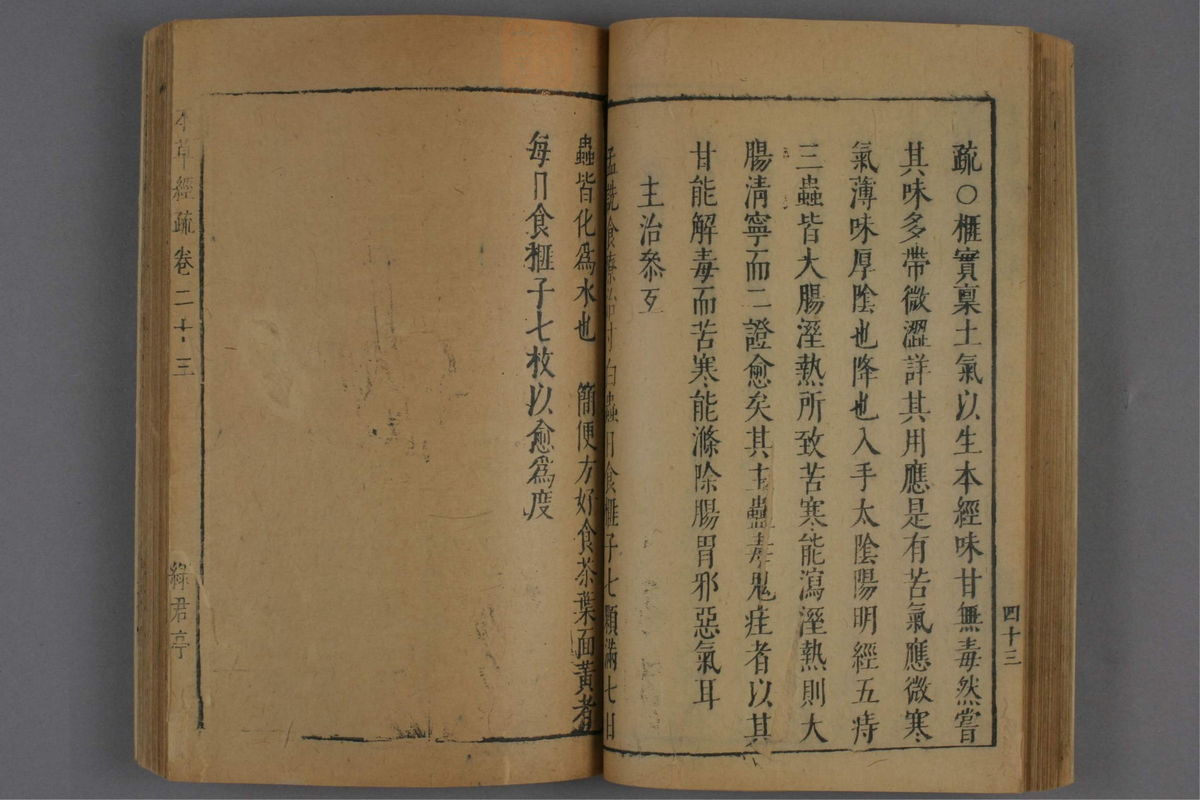 四十三
疏○榧實稟土氣以生本經味甘無毒然嘗
其味多帶微澀詳其用應是有苦氣應微寒
氣薄味厚陰也降也入手太陰陽明經五痔
三蟲皆大腸溼熱所致苦寒能瀉溼熱則大
腸清寧而二證愈矣其主蠱毒鬼疰者以其
甘能解毒而苦寒能滌除腸胃邪惡氣耳
主治叅互
孟詵食療 寸白蟲日食榧子七顆滿七日
蟲皆化爲水也 簡便方好食茶葉面黃者
每日食榧子七枚以愈爲度
本草經疏 卷二十三
綠君亭